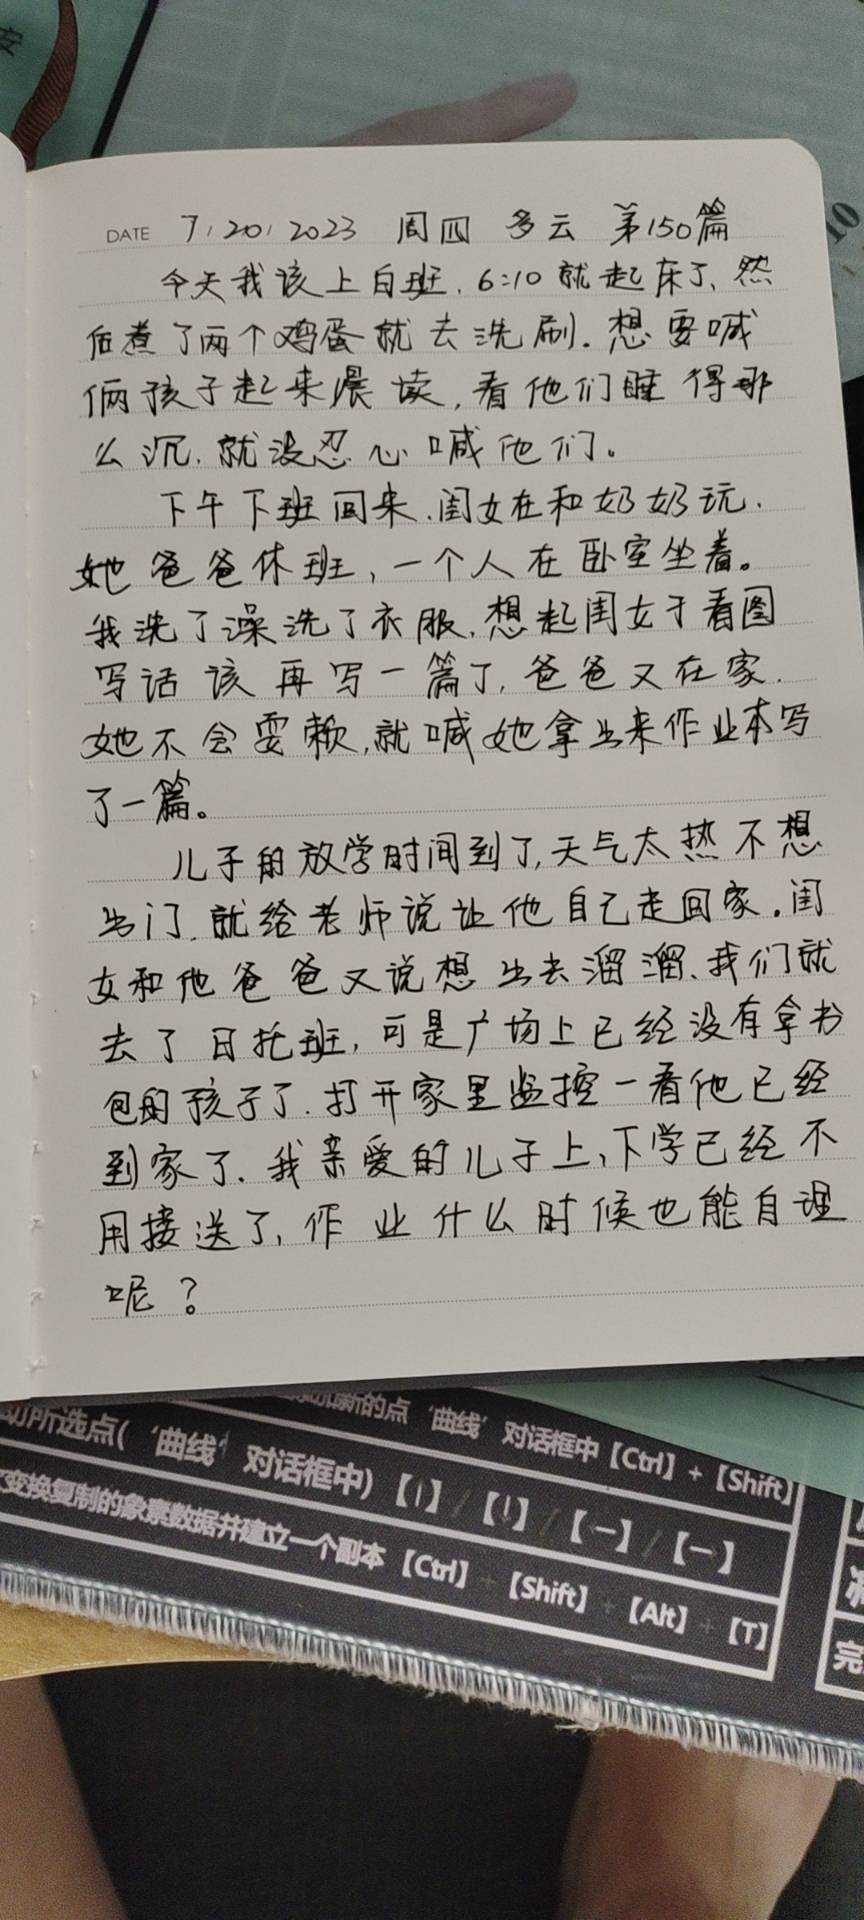 安
10
DATE 7/20/2023 周四 多云 第150篇
今天我该上白班,6:10就起床了、然
后煮了两个鸡蛋就去洗刷.想要喊
俩孩子起来晨读,看他们睡得那
么沉.就没忍心喊他们。
下午下班回来.闺女在和奶奶玩.
她爸爸休班,一个人在卧室坐着。
我洗了澡洗了衣服.想起闺女于看图
写话该再写一篇了,爸爸又在家.
她不会耍赖,就喊她拿出来作业本写
了一篇。
儿子的放学时间到了,天气太热不想
出门.就给老师说让他自己走回家.闺
女和他爸爸又说想出去溜溜.我们就
去了日托班,可是广场上已经没有拿书
包的孩子了.打开家里监控一看他已经
到家了.我亲爱的儿子上、下学已经不
用接送了,作业什么时候也能自理
呢?
新的点‘曲线’对话框中【Ctrl】+【Shift】
所选点(‘曲线’对话框中)【|】/【|】/【一】/【一】
变换复制的象素数据并建立一个副本【Ctrl】+【Shift】+【Alt】+【T】
完